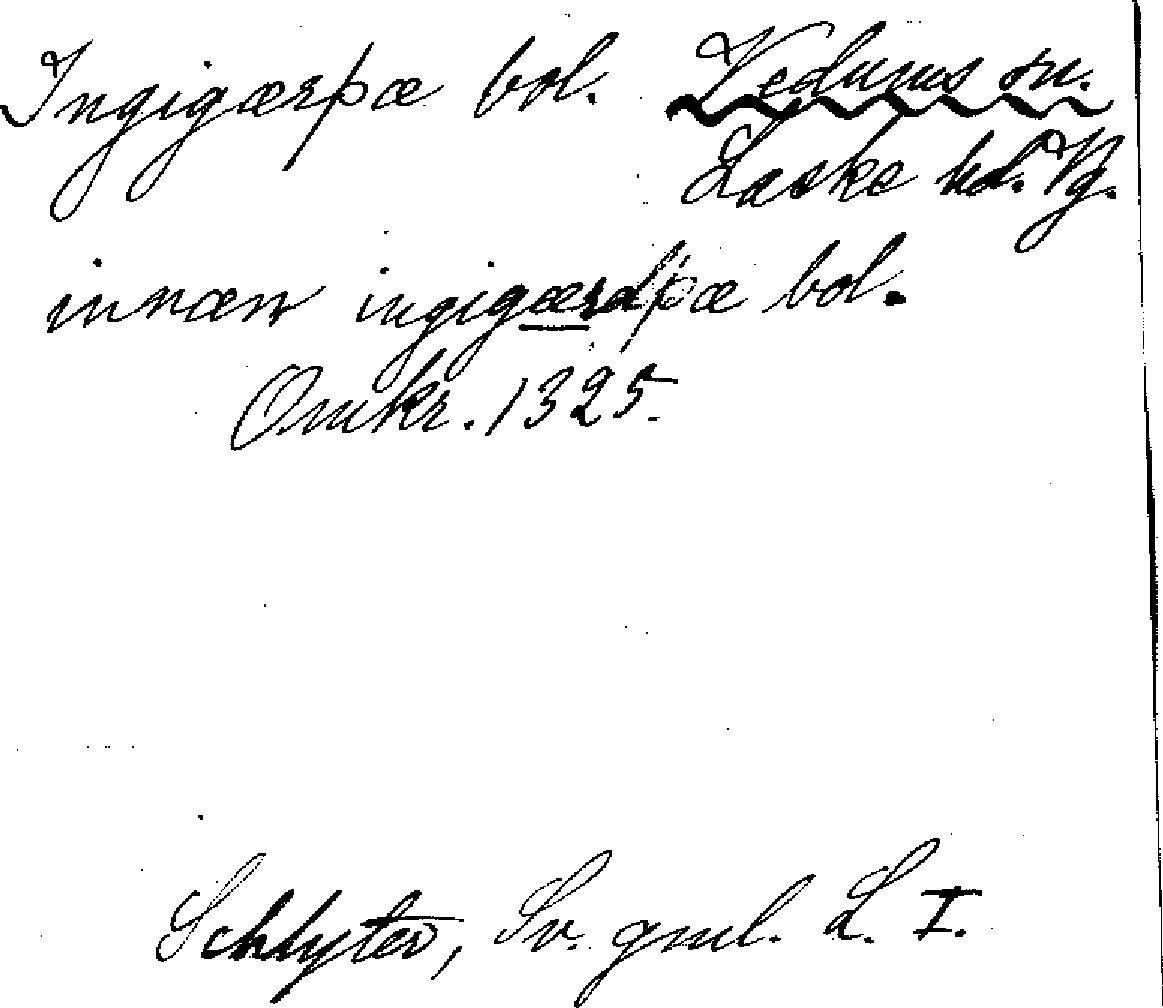 Ingigærþæ bol. Vedums sn.
Laske hd. Vg.
innæn ingigærdþæ bol.
Omkr. 1325.
Schlyter, Sv. gml. L. I.